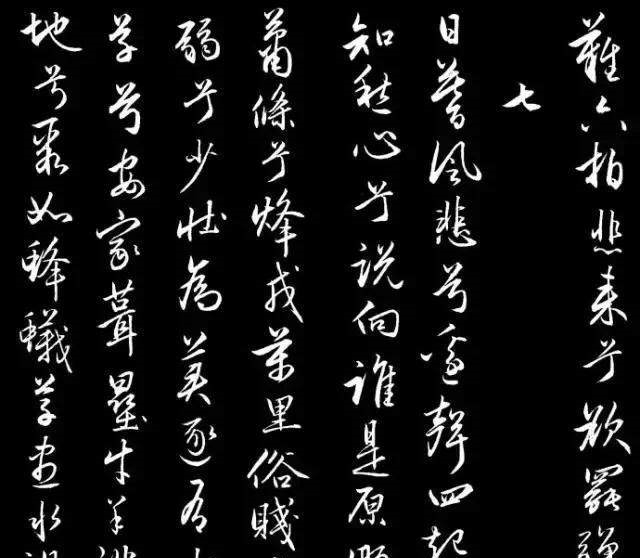 難六拍悲来兮欲罷彈
七
日暮風悲兮邊聲四起
知愁心兮説向誰是原野
蕭條兮烽戍萬里俗賤
弱兮少壯為美逐有
草兮安家葺壘牛羊
地兮聚如蜂蟻草盡水